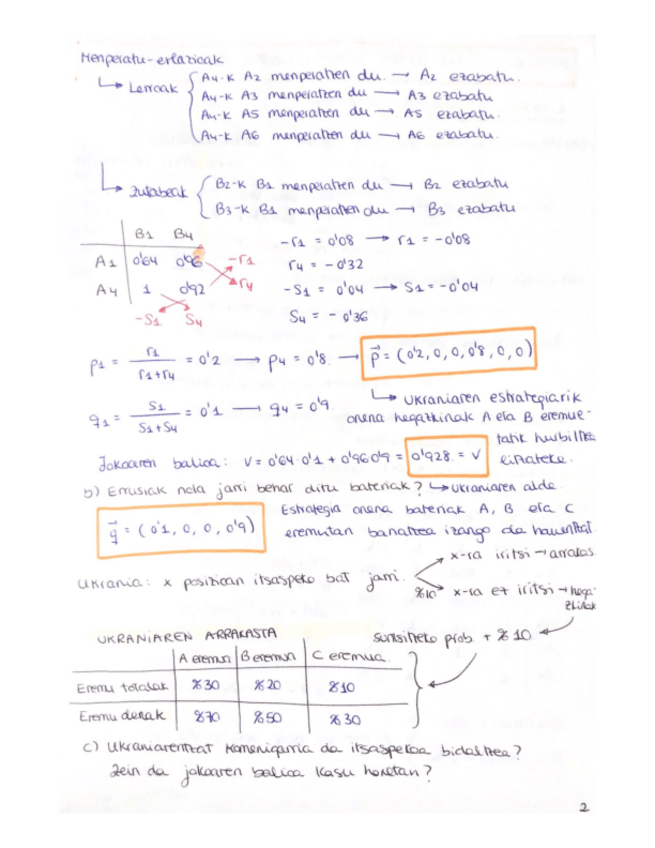 Menperatu-erlazioak
↳ Lerroak { A4-k A2 menperatzen du. → A2 ezabatu.
A4-k A3 menperatzen du → A3 ezabatu
A4-k A5 menperatzen du → A5 ezabatu.
A4-k A6 menperatzen du → A6 ezabatu.
↳ Zutabeak { B2-k B1 menperatzen du → B2 ezabatu
B3-k B1 menperatzen du → B3 ezabatu
B1 B4
A1 0'64 0'96 -r1
A4 1 0'92 r4
-S1 S4
-r1 = 0'08 → r1 = -0'08
r4 = -0'32
-S1 = 0'04 → S1 = -0'04
S4 = -0'36
p1 = r1 / (r1+r4) = 0'2 → p4 = 0'8. → p⃗ = (0'2, 0, 0, 0'8, 0, 0)
↳ Ukraniaren estrategiarik
onena hegazkinak A eta B eremue-
tatik hurbiltzea
izatea litzateke.
q1 = S1 / (S1+S4) = 0'1 → q4 = 0'9.
Jokoaren balioa: V = 0'64·0'1 + 0'96·0'9 = 0'928 = V
b) Errusiak nola jarri behar ditu bateriak? ↳ Ukraniaren alde.
q⃗ = (0'1, 0, 0, 0'9)
Estrategia onena bateriak A, B eta C
eremutan banatzea izango da hauentzat.
Ukrania: x posizioan itsaspeko bat jarri.
x-ra iritsi → arrakas.
%10 x-ra ez iritsi → hega-
zkinak
suntsitzeko prob. + %10
UKRANIAREN ARRAKASTA
A eremua B eremua C eremua
Eremu totalak %30 %20 %10
Eremu denak %70 %50 %30
c) Ukraniarentzat komenigarria da itsaspekoa bidaltzea?
Zein da jokoaren balioa kasu honetan?
2